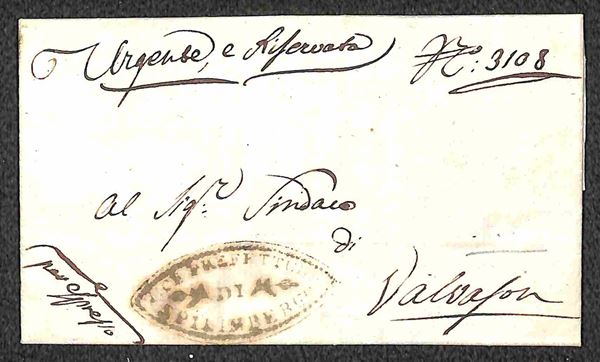 Urgente, e Riservata
N.ro: 3108
Al Sig.r Sindaco
di
Valvason
per espresso
VICE PREFETTURA
DI
SPILIMBERGO